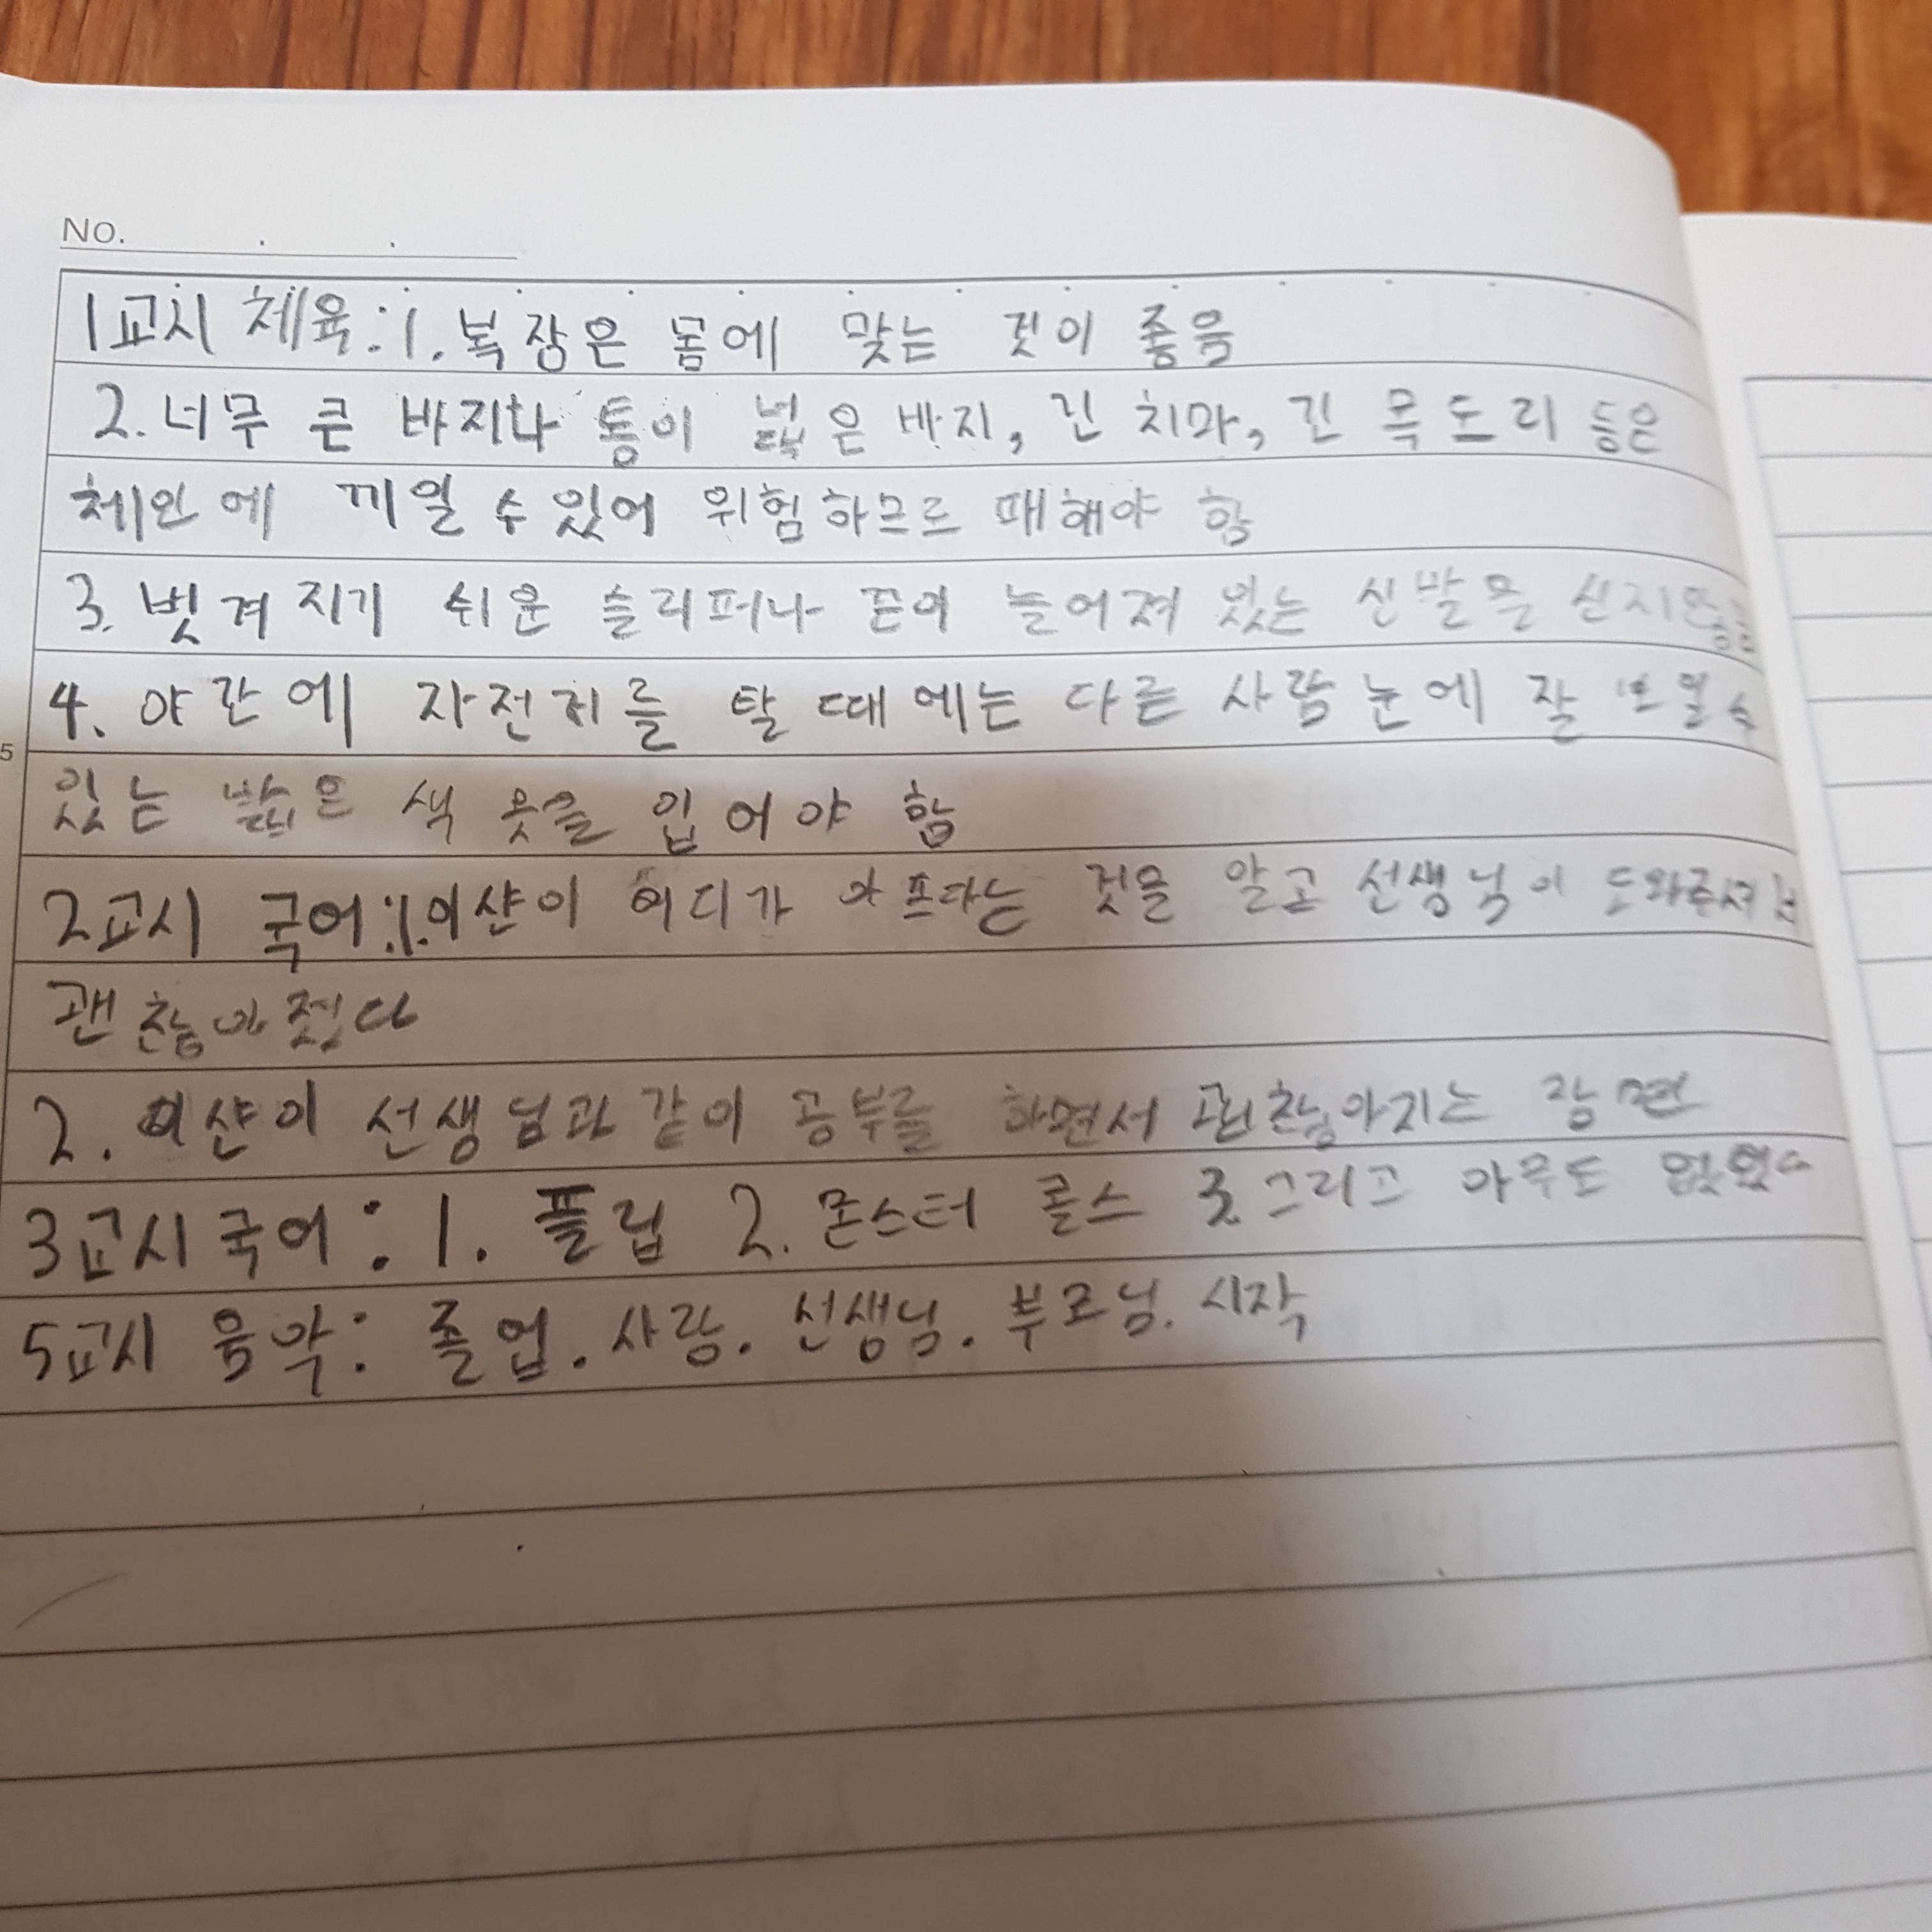 No.
1교시 체육:1. 복장은 몸에 맞는 것이 좋음
2. 너무 큰 바지나 통이 넓은 바지, 긴 치마, 긴 목도리 등은
체인에 끼일 수 있어 위험하므로 피해야 함
3. 벗겨지기 쉬운 슬리퍼나 끈이 늘어져 있는 신발을 신지
4. 야간에 자전거를 탈 때에는 다른 사람 눈에 잘 보일 수
5
있는 밝은 색 옷을 입어야 함
2교시 국어:1. 이샨이 어디가 아프다는 것을 알고 선생님이 도와주셔서
괜찮아졌다
2. 이샨이 선생님과 같이 공부를 하면서 괜찮아지는 장면
3교시 국어: 1. 플립 2. 몬스터 콜스 3. 그리고 아무도 없었다
5교시 음악: 졸업. 사랑. 선생님. 부모님. 시작